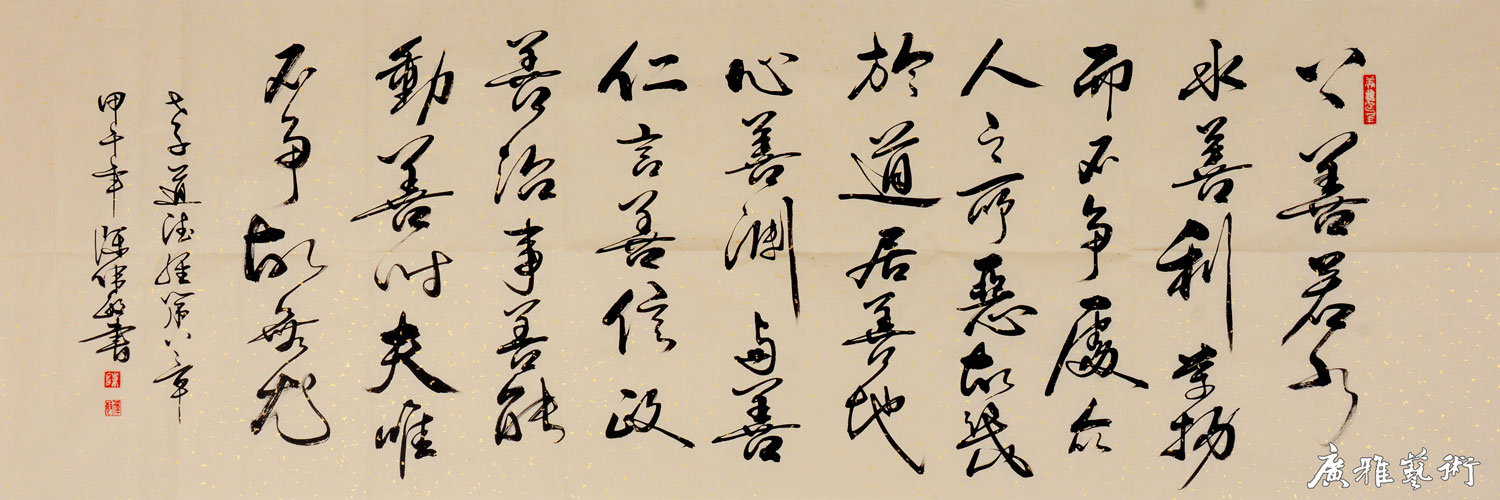 上善若水
水善利萬物
而不争處众
人之所惡故幾
於道居善地
心善渊与善
仁言善信政
善治事善能
動善时夫唯
不争故無尤
老子道德經第八章
甲午年 書
廣雅藝術